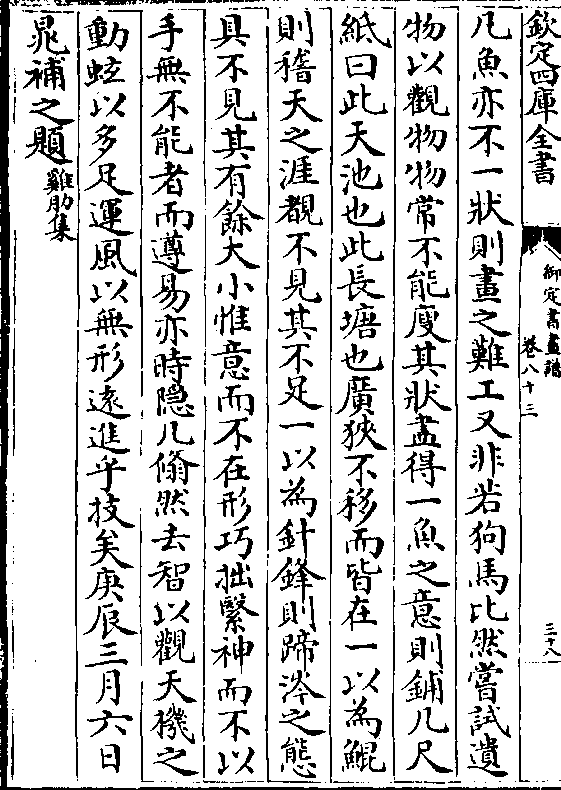 欽定四庫全書
御定書畫譜
卷八十三
三十八
凡魚亦不一狀則畫之難工又非若狗馬比然嘗試遺
物以觀物物常不能廋其狀盡得一魚之意則鋪几尺
紙曰此天池也此長塘也廣狹不移而皆在一以為鯤
則稽天之涯覩不見其不足一以為針鋒則蹄涔之態
具不見其有餘大小惟意而不在形巧拙繫神而不以
手無不能者而遵易亦時隠几翛然去智以觀天機之
動蚿以多足運風以無形逺進乎技矣庚辰三月六日
晁補之題雞肋集